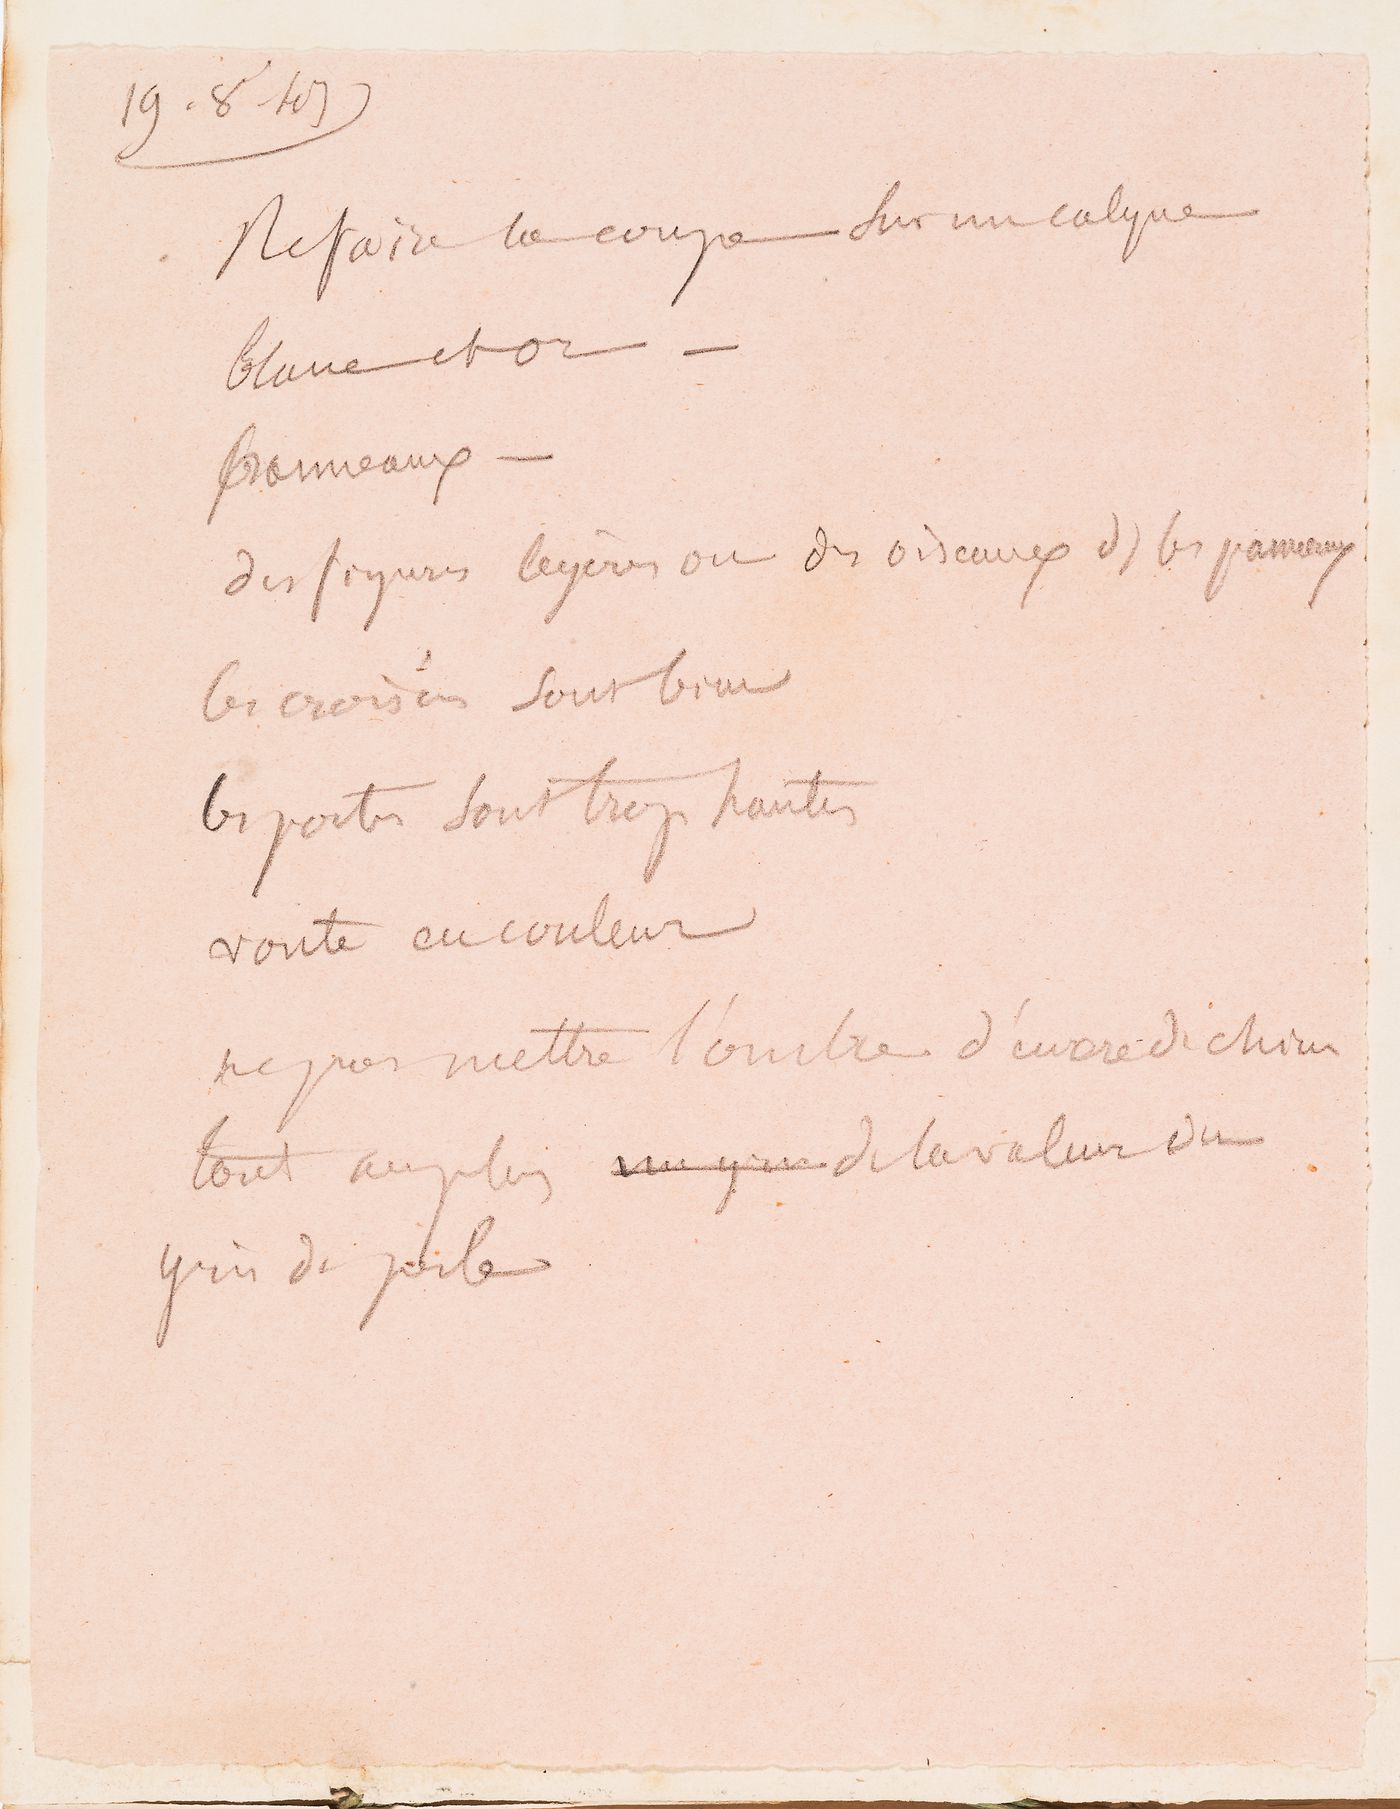 19. 8bre
Refaire la coupe sur un calque
blanc et or —
panneaux —
des figures legères ou des oiseaux ds les panneaux
les croisées sont bien
les portes sont trop hautes
voute en couleur
ne pas mettre l'ombre d'encre de chine
tout au plus un gris de la valeur du
gris de perle